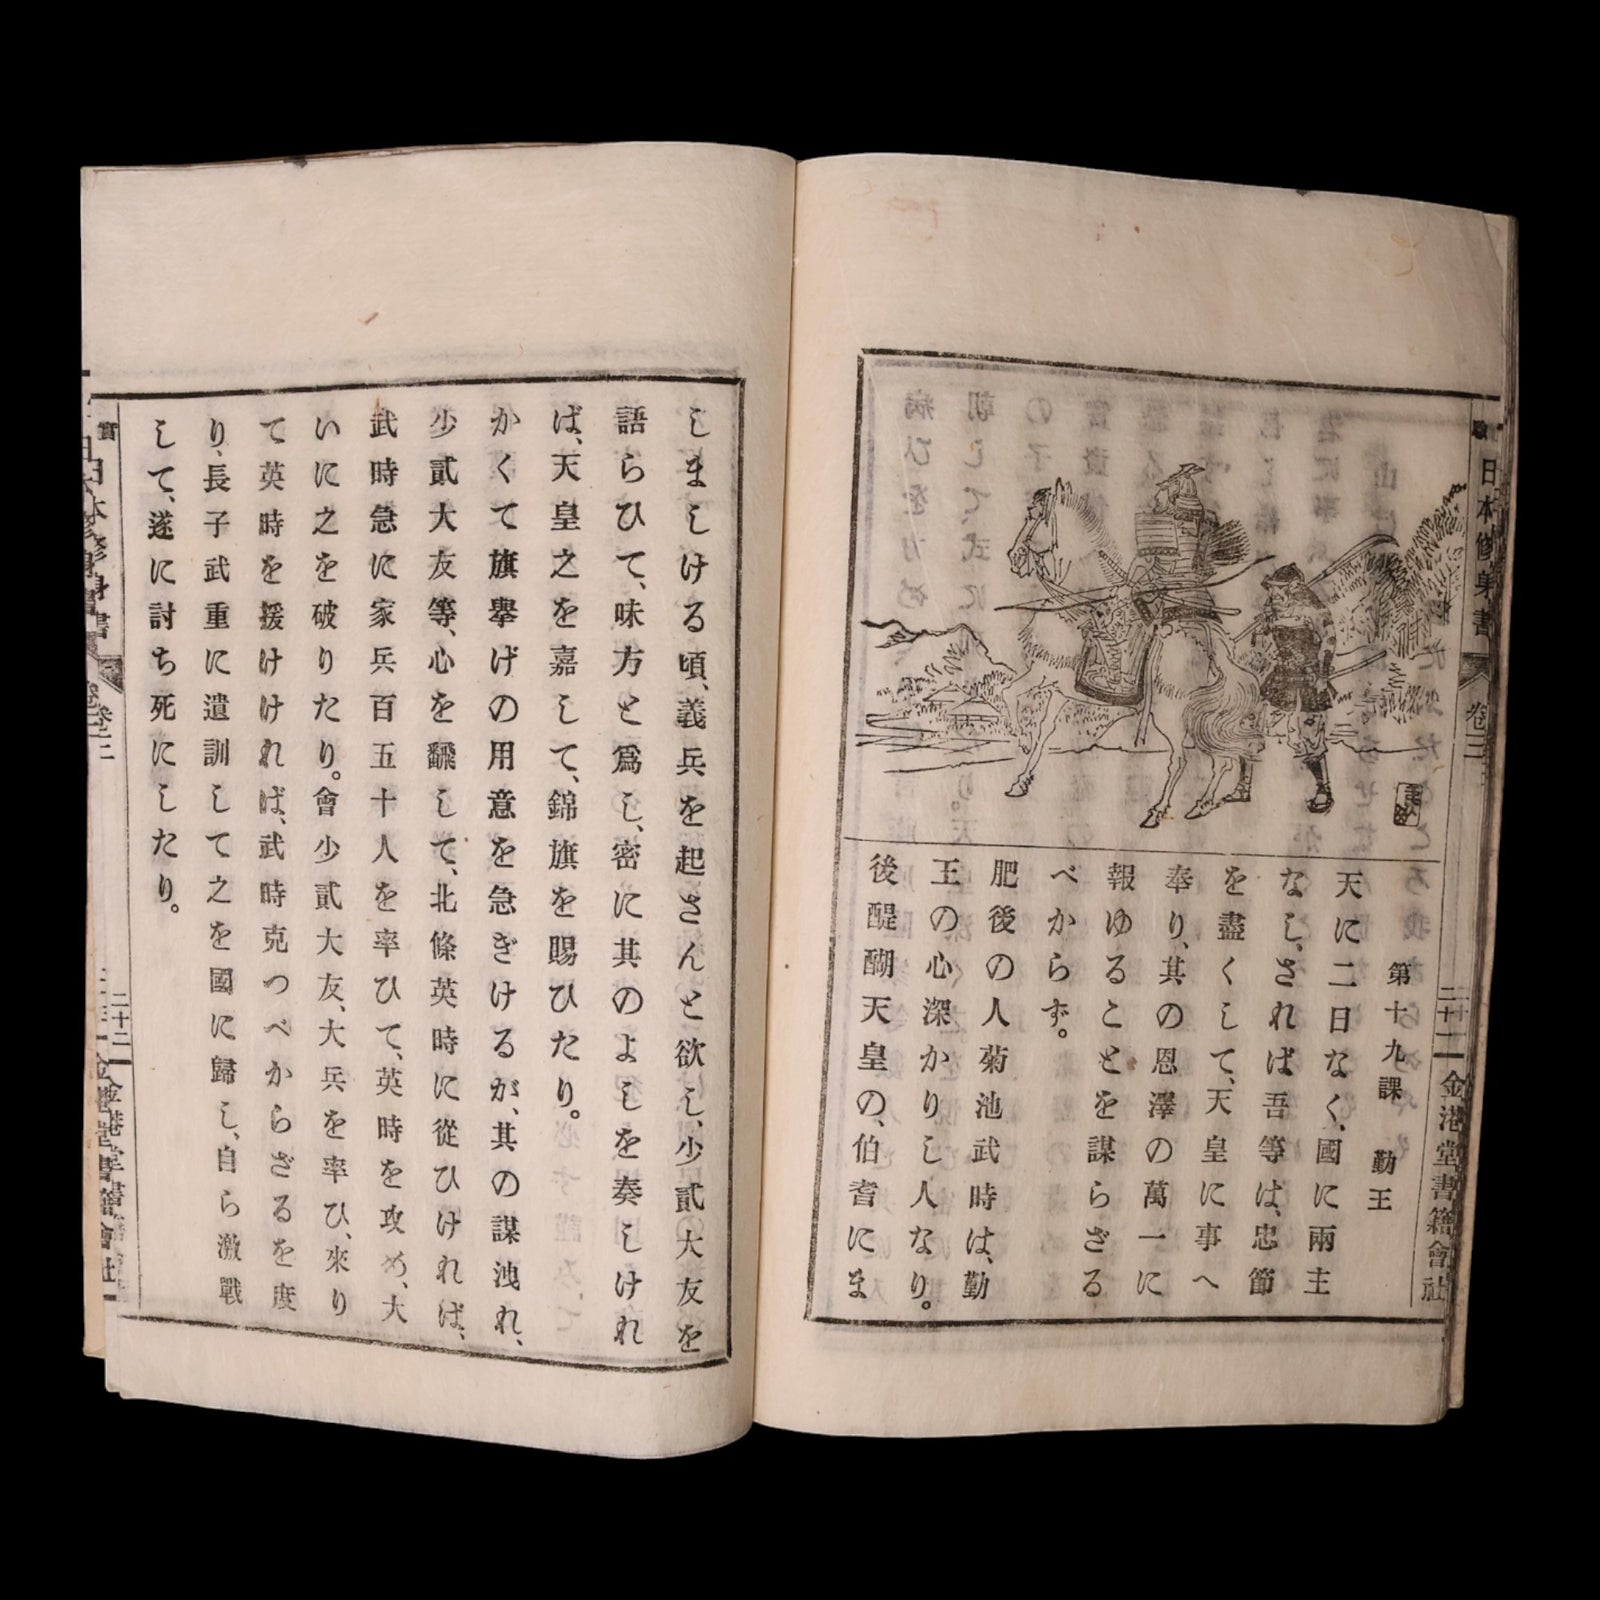 日本修身書 卷三 二十二 金港堂書籍會社
第十九課 勤王
天に二日なく、國に兩主
なし、されば吾等は、忠節
を盡くして、天皇に事へ
奉り、其の恩澤の萬一に
報ゆることを謀らざる
べからず。
肥後の人菊池武時は、勤
王の心深かりし人なり。
後醍醐天皇の、伯耆にま
しましける頃、義兵を起さんと欲し、少貳大友を
語らひて、味方と爲し、密に其のよしを奏しけれ
ば、天皇之を嘉して、錦旗を賜ひたり。
かくて旗擧げの用意を急ぎけるが、其の謀洩れ、
少貳大友等、心を飜して、北條英時に從ひければ、
武時急に家兵百五十人を率ひて、英時を攻め、大
いに之を破りたり。會少貳大友、大兵を率ひ、來り
て英時を援けければ、武時克つべからざるを度
り、長子武重に遺訓して之を國に歸し、自ら激戰
して、遂に討ち死にしたり。
日本修身書 卷三 二十二 金港堂書籍會社